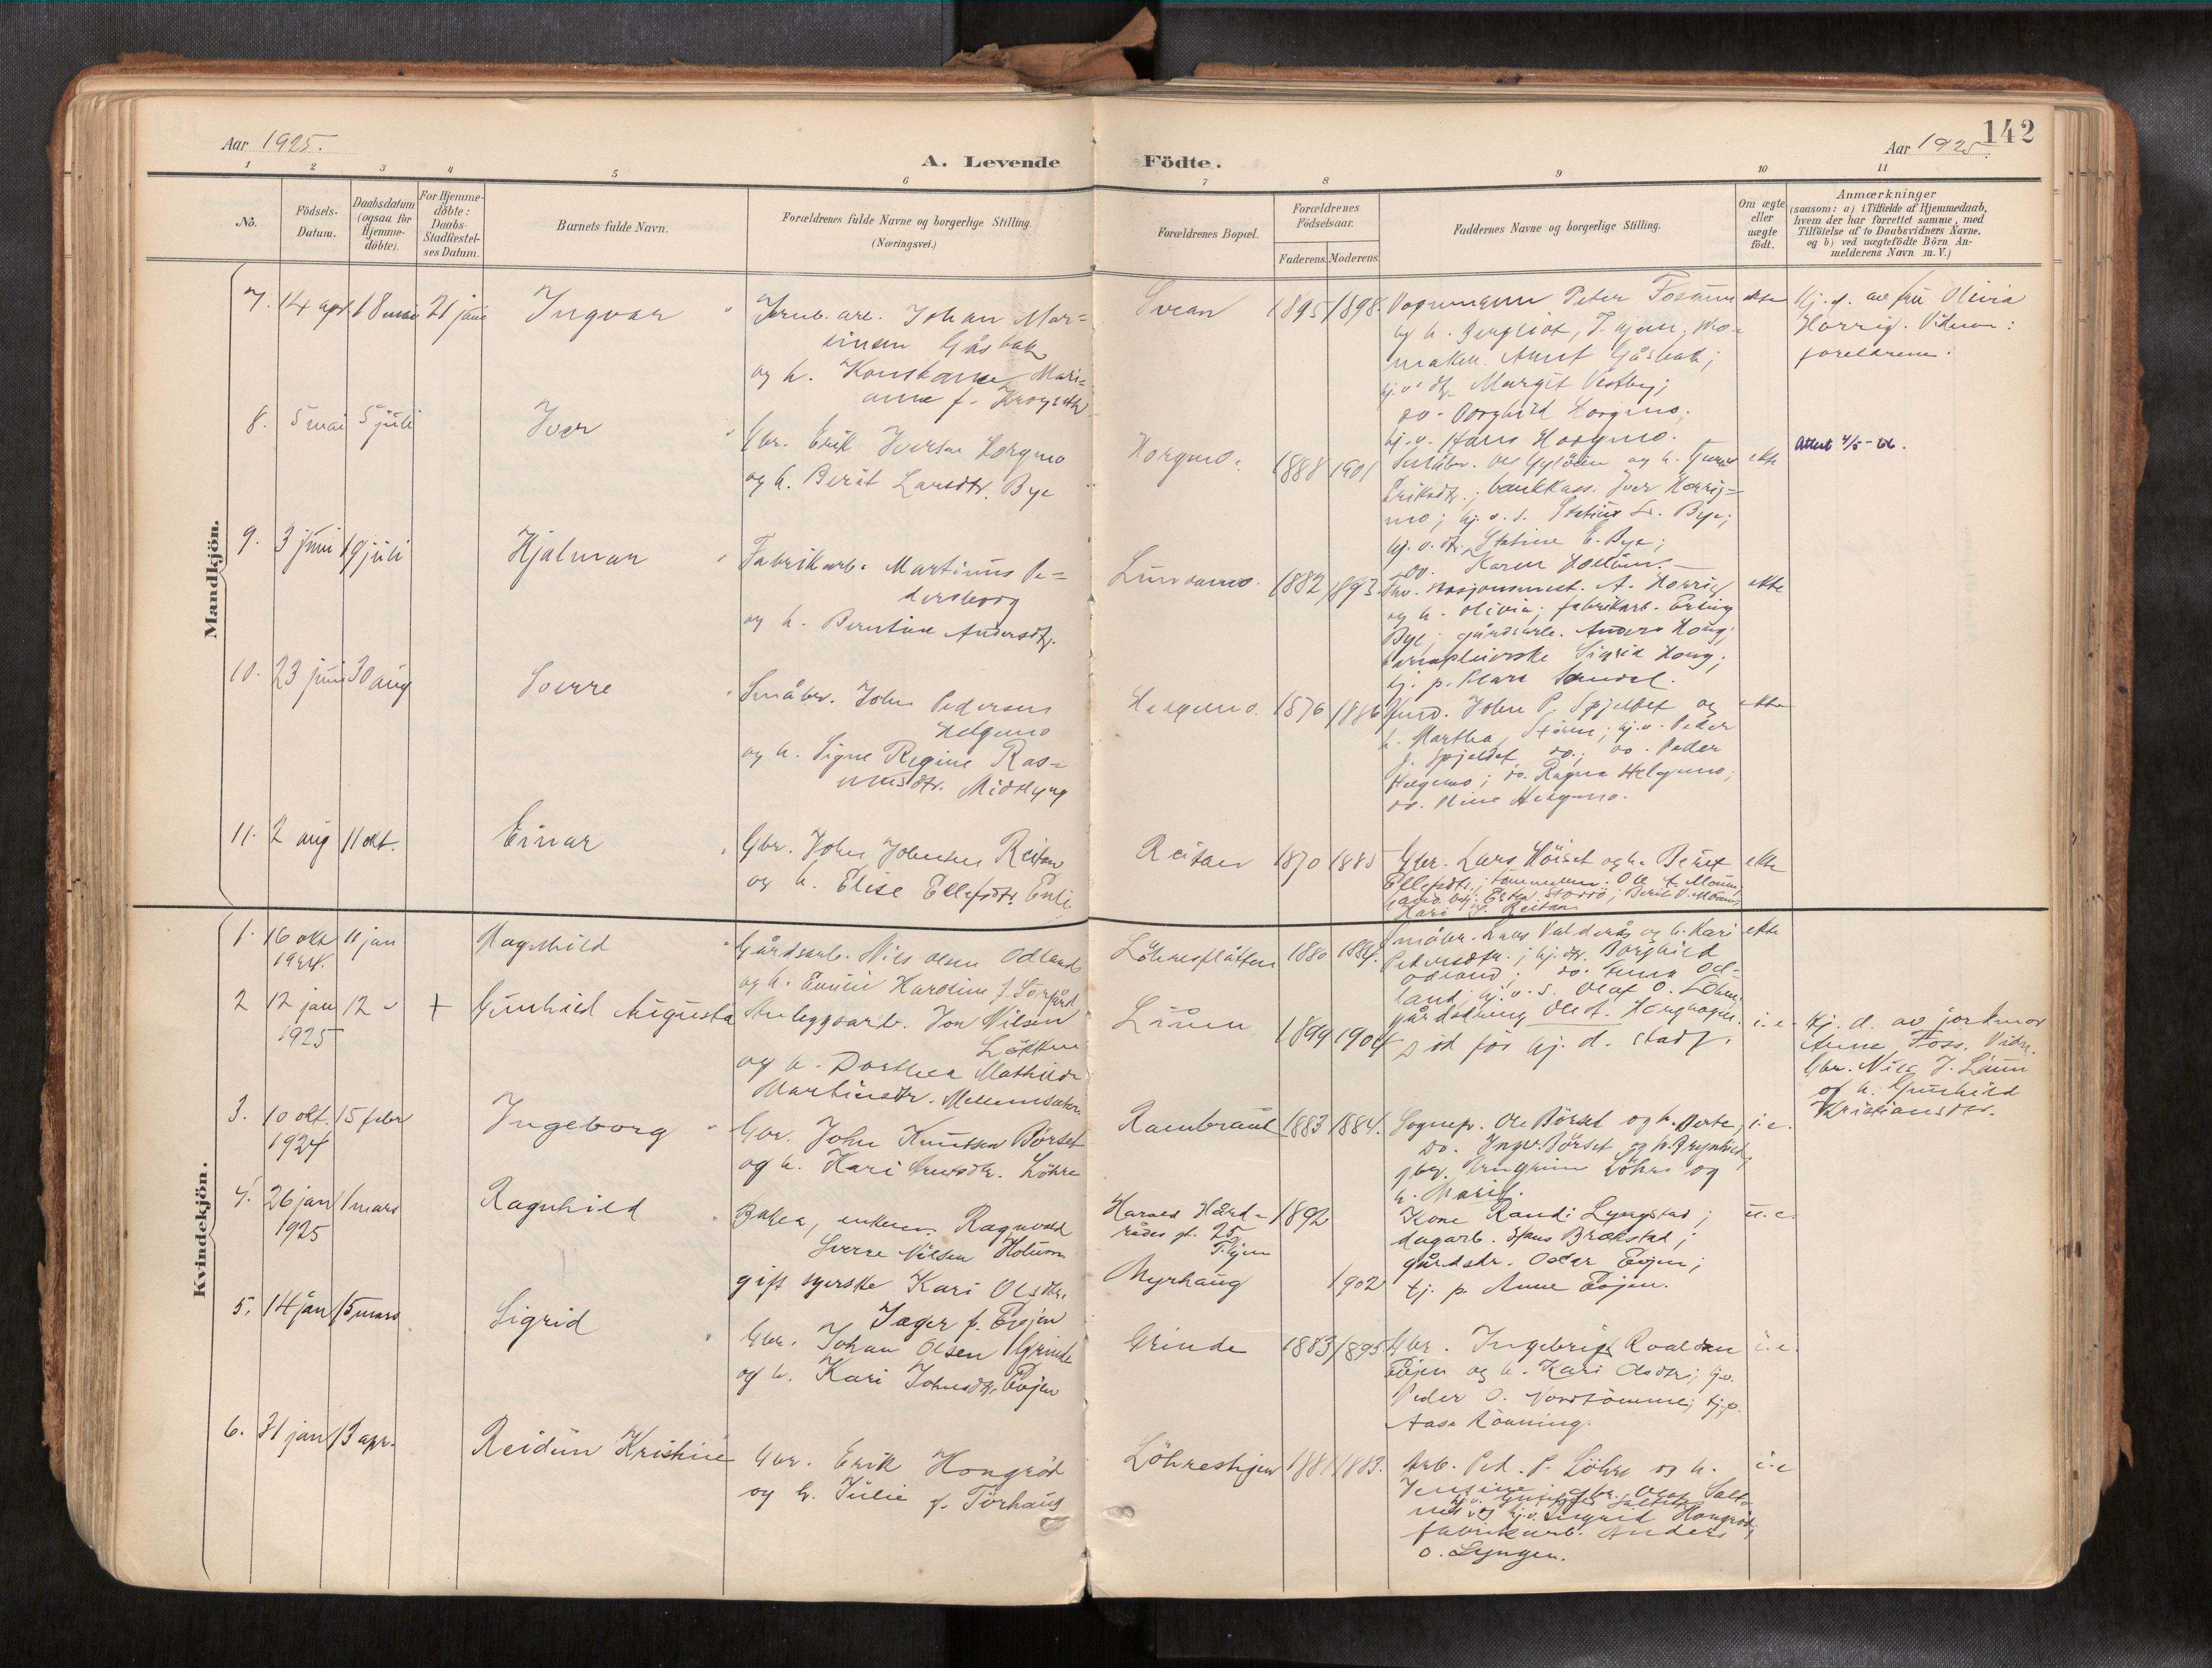 142
Aar 1925.
A. Levende Födte.
Aar 1925.
1 2 3 4 5 6 7 8 9 10 11
No.
Födsels-
Datum.
Daabsdatum
(ogsaa for
Hjemme-
döbte).
For Hjemme-
döbte:
Daabs-
Stadfæstel-
ses Datum.
Barnets fulde Navn.
Forældrenes fulde Navne og borgerlige Stilling
(Næringsvei.)
Forældrenes Bopæl.
Forældrenes
Födselsaar.
Faderens. Moderens.
Faddernes Navne og borgerlige Stilling.
Om ægte
eller
uægte
födt.
Anmærkninger
(saasom: a) i Tilfælde af Hjemmedaab,
hvem der har forrettet samme, med
Tilföielse af to Daabsvidners Navne.
og b) ved uægtefödte Börn An-
melderens Navn m.V.)
Mandkjön.
7. 14 apr 18 mai 21 juni Ingvar
Jernb. arb. Johan Mar=
insen Gåsbak
og h. Konstanse Mari=
anne f. Krogseth
Svean 1895 1898.
Peter Fossum
og h. Bergliot,
Gåsbak;
Margit Vestby;
do. Borghild Horgmo;
Hans Horgmo.
ekte
Hj. d. av fru Olivia
Horrig.
foreldrene.
8. 5 mai 5 juli Iver
Gbr. Erik Iversen Horgmo
og h. Berit Larsdtr. Bye
Horgmo. 1888 1901
Småbr. Ole og h.
Eriksdtr.; bankkass. Iver Horrig=
mo; hj. v. s. Bye;
hj. v. dtr. Statine E. Bye;
do. Karen
ekte
Attest 4/5-66.
9. 3 juni 19 juli Hjalmar
Fabrikarb. Martinus Pe=
dersborg
og h. Berntine Andersdtr.
Lundamo. 1882 1893.
A. Horrig
og h. Olivia; fabrikarb. Erling
Bye; gårdsarb. Anders Hong;
Sigrid Hong;
tj. p. Klara
ekte
10. 23 juni 30 aug Sverre
Småbr. John Pedersen
Helgemo
og h. Signe Regine Ras=
musdtr. Midtlyng
Helgemo. 1876 1886
John P. Spjeldet og
h. Martha, Støren; hj. v. Peder
J. Spjeldet do.; do. Peder
Helgemo; do. Ragna Helgemo;
do. Helgemo.
ekte
11. 2 aug 11 okt. Einar
Gbr. John Johnsen Reitan
og h. Elise Ellefsdtr. Enli
Reitan 1870 1885
Gbr. Lars Höiset og h. Beret
Ellefsdtr.;
Kari J. Reitan
ekte
Kvindekjön.
1. 16 okt 1924. 11 jan Ragnhild
Gårdsarb. Nils Olsen Odland
og h. Emilie Karoline f. Sörgård
Löhresflåtten 1880 1884.
Småbr. Lars Valderås og h. Kari
Pedersdtr.; hj. dtr. Borghild
Odland; do. Anna Od=
land; hj. v. s. Olaf O. Löhre;
ekte
2 12 jan 1925 12 " + Gunhild Augusta
Anleggsarb. Jon Nilsen
Løkken
og h. Dorthea Mathilde
Martinsdtr.
Liåen 1899 1904
Död før hj. d. stadf.
i. e.
Hj. d. av jordmor
Anna Foss. Vidn.
Gbr. Nils J. Liåen
og h. Gunhild
Kristiansdtr.
3. 10 okt. 1924 15 febr Ingeborg
Gbr. John Knutsen Börset
og h. Kari Arnsdtr. Löhre
Rambraut 1883 1884.
Sognepr. Ole Börset og h. Berte;
do. Ingv. Börset og h. Brynhild;
gbr. Arngrim Löhre og
h. Marit.
i. e.
4. 26 jan 1925 1 mars Ragnhild
Baker, enkem. Ragnvald
Sverre Nilsen Holum
gift syerske Kari Olsdtr.
Jæger f. Evjen
Harald Hård=
rådes gt. 25
T.hjem
Myrhaug
1892
1902
Kone Randi Lyngstad;
dagarb. Hans Brekstad;
gårdsbr. Oskar Evjen;
tj. p. Anne Evjen.
u. e.
5. 14 jan 15 mars Sigrid
Gbr. Johan Olsen Grinde
og h. Kari Johnsdtr. Evjen
Grinde 1883 1895
Gbr. Ingebrigt Roaldsen
Evjen og h. Kari Olsdtr;
Peder O. Nordtömme; tj. p.
Aasa Rönning.
i. e.
6. 31 jan 13 apr. Reidun Kristine
Gbr. Erik Hongröd
og h. Julie f. Tørhaug
Löhreshjem 1881 1883.
Arb. Ped. P. Löhre og h.
Jensine; gbr. Olaf Salt=
nes og hj. v. Ingrid Hongröd;
fabrikarb. Anders
O. Lyngen.
i. e